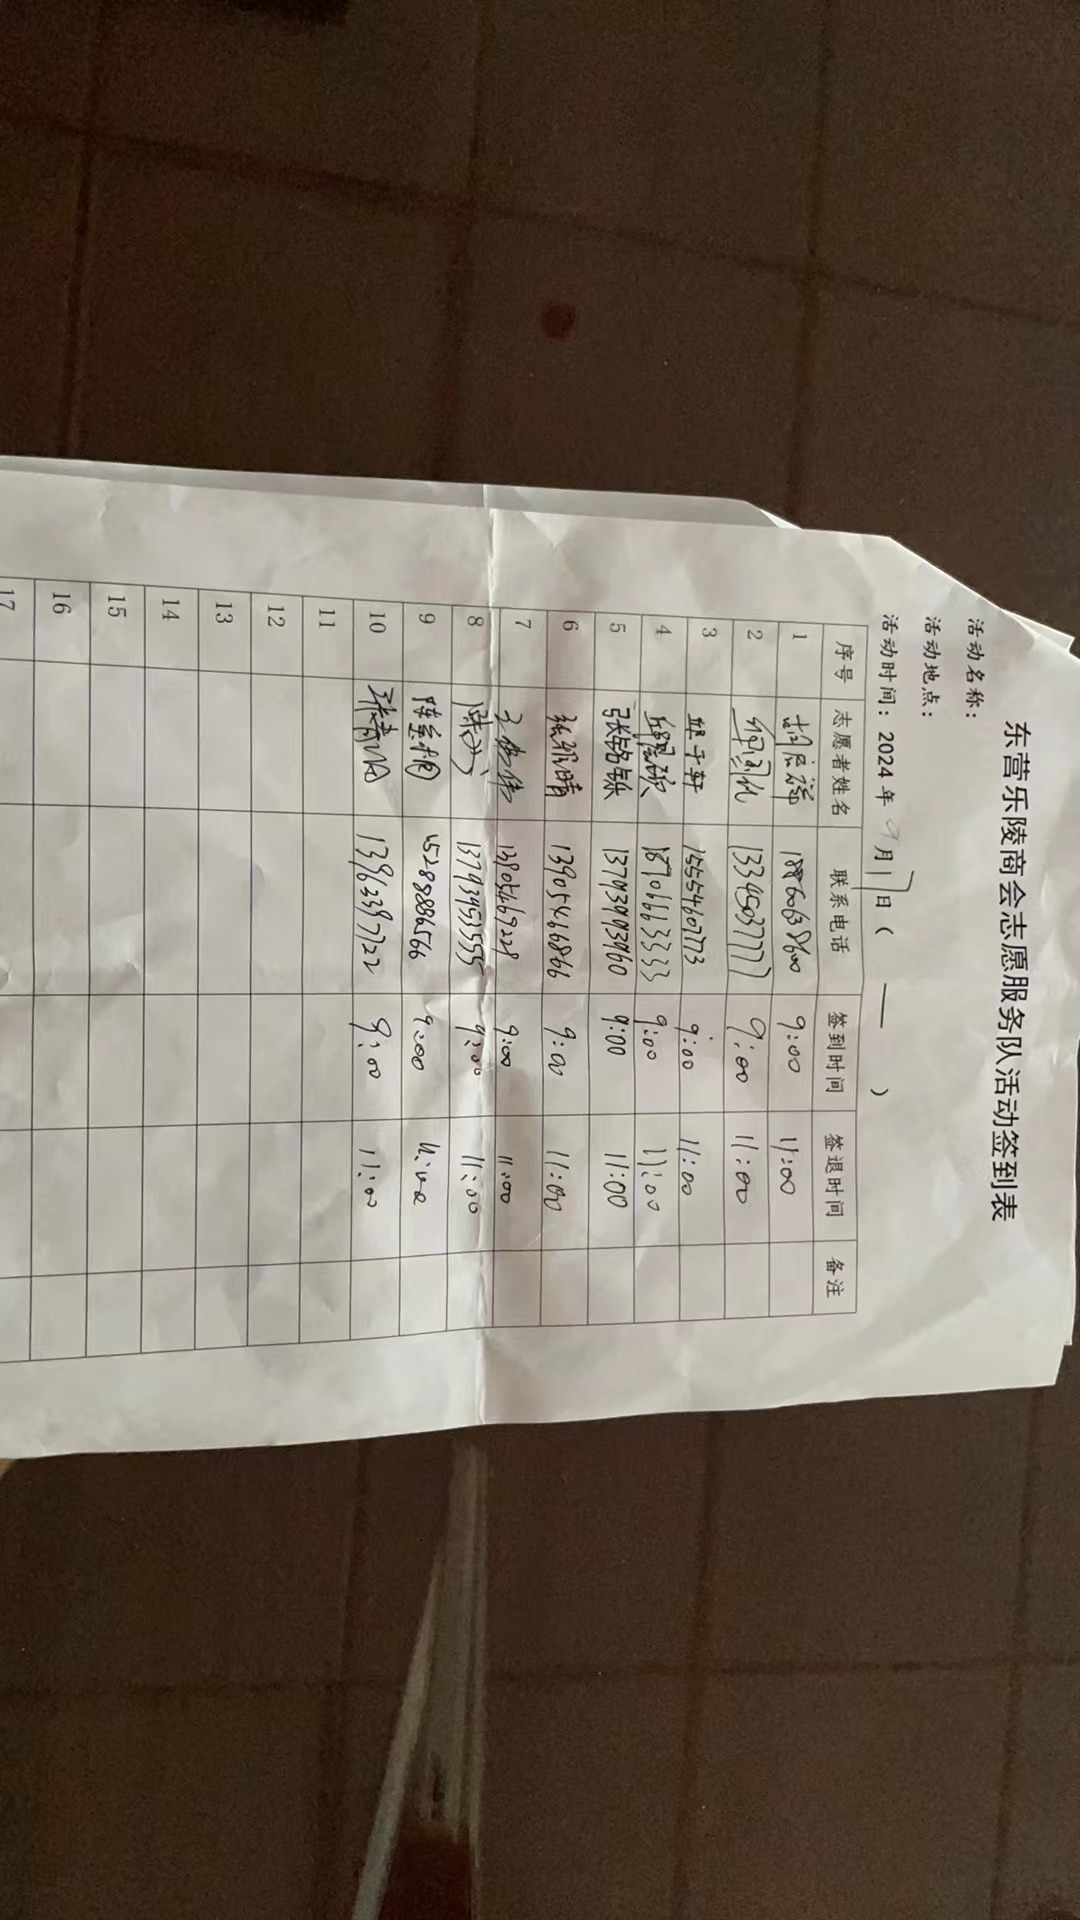 东营乐陵商会志愿服务队活动签到表
活动名称：
活动地点：
活动时间：2024年9月17日（ — ）
序号 志愿者姓名 联系电话 签到时间 签退时间 备注
1 18860638600 9:00 11:00
2 13345037777 9:00 11:00
3 邱子轩 15554607773 9:00 11:00
4 18706663333 9:00 11:00
5 张铭乐 13793993960 9:00 11:00
6 13905466866 9:00 11:00
7 13905469229 9:00 11:00
8 13793953555 9:00 11:00
9 15288886566 9:00 11:00
10 13963397722 9:00 11:00
11
12
13
14
15
16
17